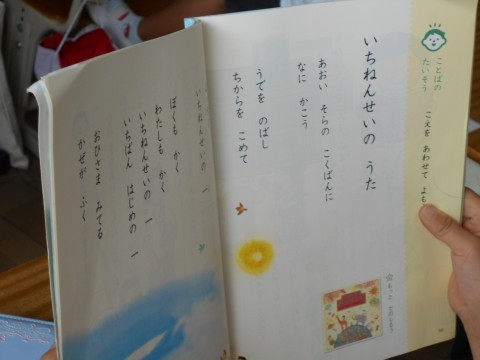 ことばの
たいそう
こえを あわせて よも
いちねんせいの うた
あおい そらの こくばんに
なに かこう
うでを のばし
ちからを こめて
いちねんせいの 一
ぼくも かく
わたしも かく
いちねんせいの 一
いちばん はじめの 一
おひさま みてる
かぜが ふく